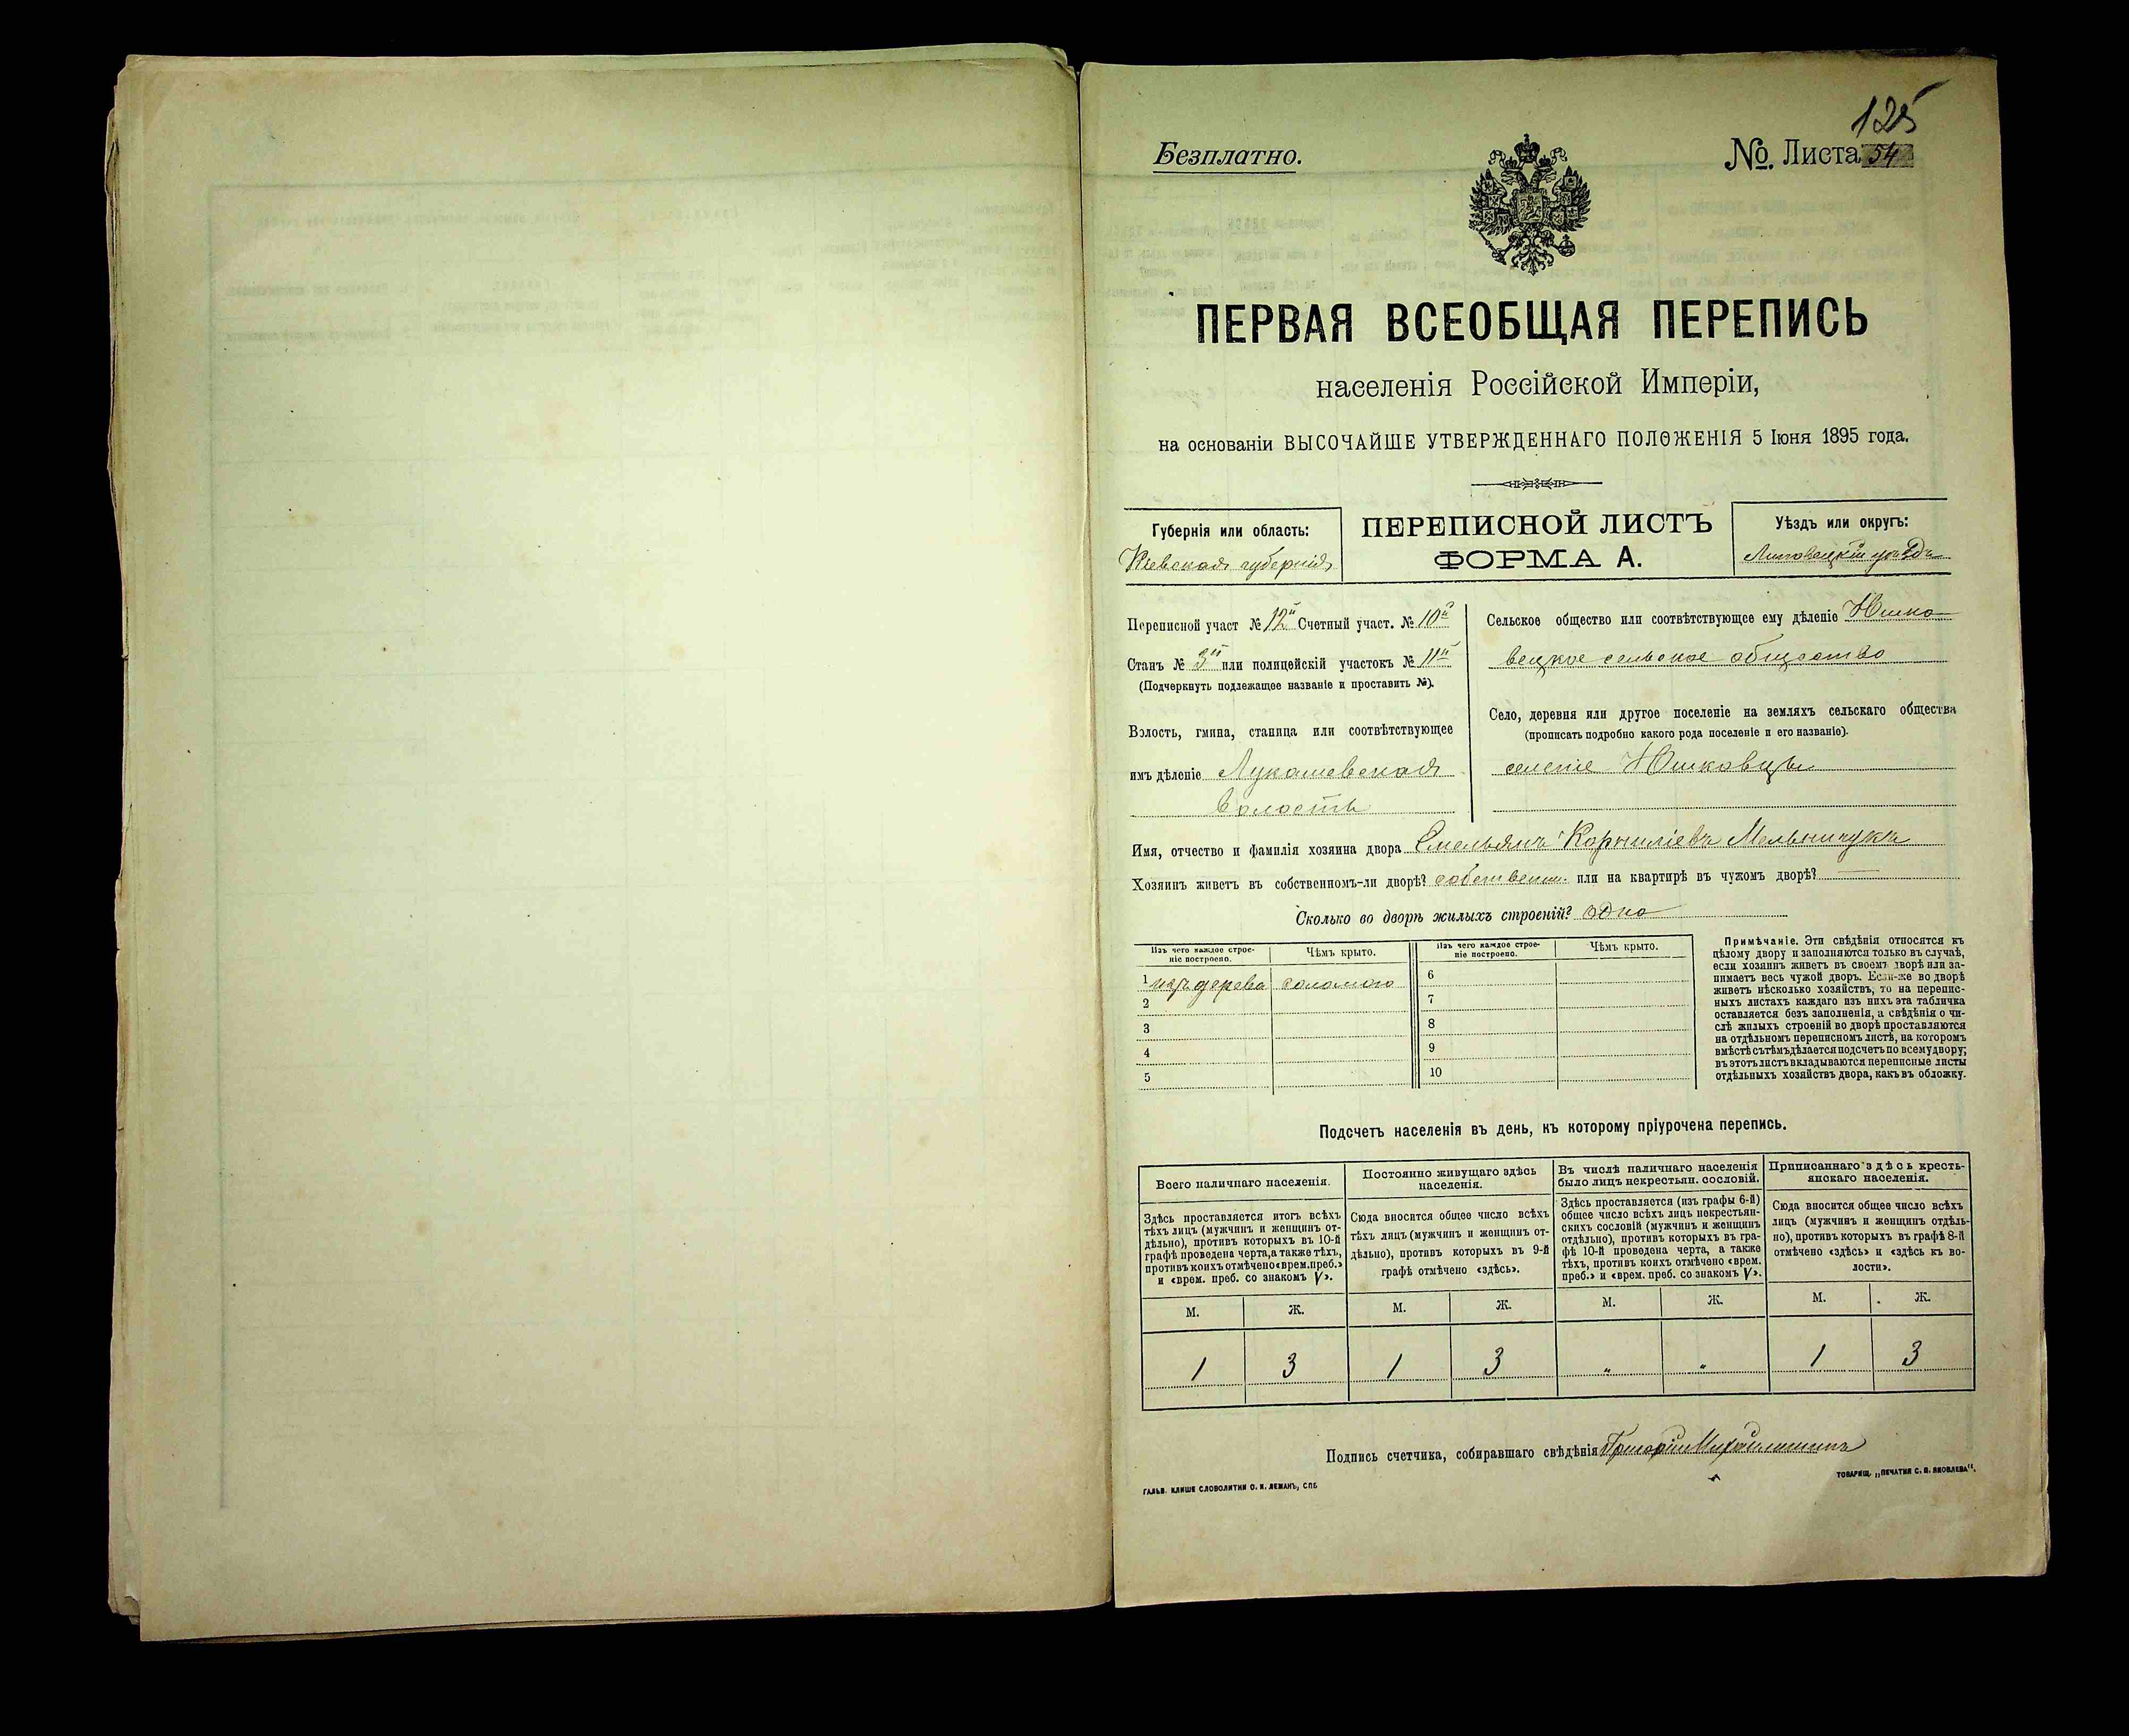 125
Безплатно.
№. Листа 54
ПЕРВАЯ ВСЕОБЩАЯ ПЕРЕПИСЬ
населенія Россійской Имперіи,
на основаніи ВЫСОЧАЙШЕ УТВЕРЖДЕННАГО ПОЛОЖЕНІЯ 5 Іюня 1895 года.
Губернія или область:
Кіевская губернія
ПЕРЕПИСНОЙ ЛИСТЪ
ФОРМА А.
Уѣздъ или округъ:
Липовецкій уѣздъ
Переписной участ № 12й Счетный участ. № 10й
Станъ № 3й или полицейскій участокъ № 11й
(Подчеркнуть подлежащее названіе и проставить №).
Волость, гмина, станица или соотвѣтствующее
имъ дѣленіе Лукашевская
волость
Сельское общество или соотвѣтствующее ему дѣленіе Юшко-
вецкое сельское общество
Село, деревня или другое поселеніе на земляхъ сельскаго общества
(прописать подробно какого рода поселеніе и его названіе).
селеніе Юшковцы
Имя, отчество и фамилія хозяина двора Емельянъ Корниліевъ Мельничукъ
Хозяинъ живетъ въ собственномъ-ли дворѣ? собственн. или на квартирѣ въ чужомъ дворѣ? —
Сколько во дворѣ жилыхъ строеній? одно
Изъ чего каждое строе-
ніе построено.
Чѣмъ крыто.
Изъ чего каждое строе-
ніе построено.
Чѣмъ крыто.
1 изъ дерева соломою
2
3
4
5
6
7
8
9
10
Примѣчаніе. Эти свѣдѣнія относятся къ
цѣлому двору и заполняются только въ случаѣ,
если хозяинъ живетъ въ своемъ дворѣ или за-
нимаетъ весь чужой дворъ. Если-же во дворѣ
живетъ нѣсколько хозяйствъ, то на перепис-
ныхъ листахъ каждаго изъ нихъ эта табличка
оставляется безъ заполненія, а свѣдѣнія о чи-
слѣ жилыхъ строеній во дворѣ проставляются
на отдѣльномъ переписномъ листѣ, на которомъ
вмѣстѣ съ тѣмъ дѣлается подсчетъ по всему двору;
въ этотъ листъ вкладываются переписные листы
отдѣльныхъ хозяйствъ двора, какъ въ обложку.
Подсчетъ населенія въ день, къ которому пріурочена перепись.
Всего наличнаго населенія.
Здѣсь проставляется итогъ всѣхъ
тѣхъ лицъ (мужчинъ и женщинъ от-
дѣльно), противъ которыхъ въ 10-й
графѣ проведена черта, а также тѣхъ,
противъ коихъ отмѣчено «врем. преб.»
и «врем. преб. со знакомъ V».
Постоянно живущаго здѣсь
населенія.
Сюда вносится общее число всѣхъ
тѣхъ лицъ (мужчинъ и женщинъ от-
дѣльно), противъ которыхъ въ 9-й
графѣ отмѣчено «здѣсь».
Въ числѣ наличнаго населенія
было лицъ некрестьян. сословій.
Здѣсь проставляется (изъ графы 6-й)
общее число всѣхъ лицъ некрестьян-
скихъ сословій (мужчинъ и женщинъ
отдѣльно), противъ которыхъ въ гра-
фѣ 10-й проведена черта, а также
тѣхъ, противъ коихъ отмѣчено «врем.
преб.» и «врем. преб. со знакомъ V».
Приписаннаго здѣсь кресть-
янскаго населенія.
Сюда вносится общее число всѣхъ
лицъ (мужчинъ и женщинъ отдѣль-
но), противъ которыхъ въ графѣ 8-й
отмѣчено «здѣсь» и «здѣсь къ во-
лости».
М. Ж. М. Ж. М. Ж. М. Ж.
1 3 1 3 " " 1 3
Подпись счетчика, собиравшаго свѣдѣнія Григорій
ГАЛЬВ. КЛИШЕ СЛОВОЛИТНИ О. И. ЛЕМАНЪ, СПБ
ТОВАРИЩ. „ПЕЧАТНЯ С. П. ЯКОВЛЕВА“.